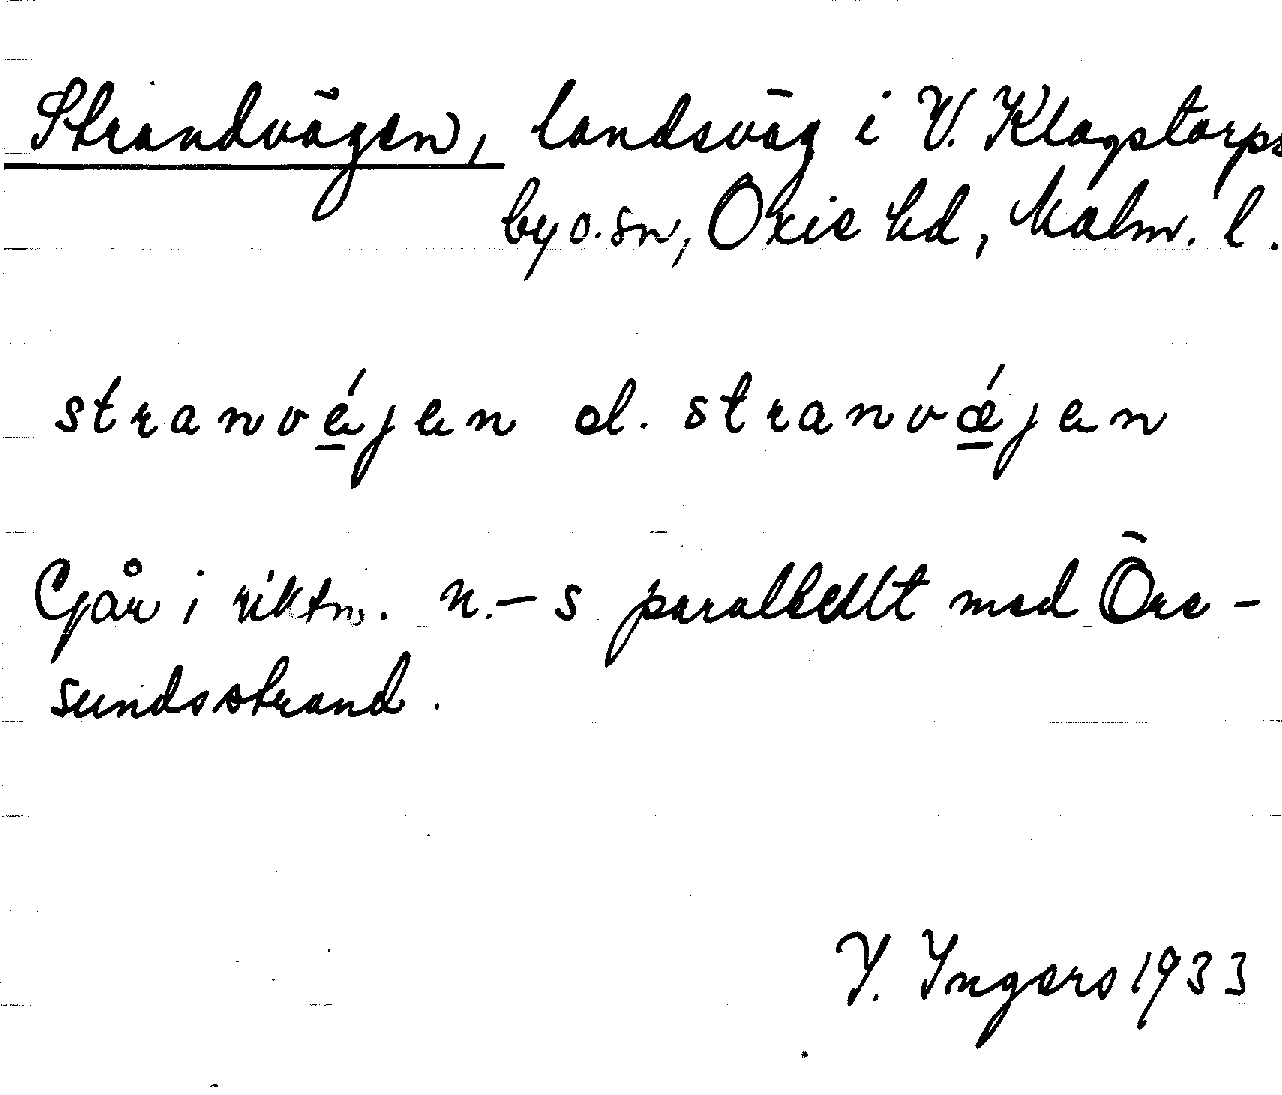 Strandvägen, landsväg i V. Klagstorps
by o. sn, Oxie hd, Malm. l.
stranvéjen el. stranvǽjen
Går i riktn. n.–s parallellt med Öre-
sundsstrand.
I. Ingers 1933